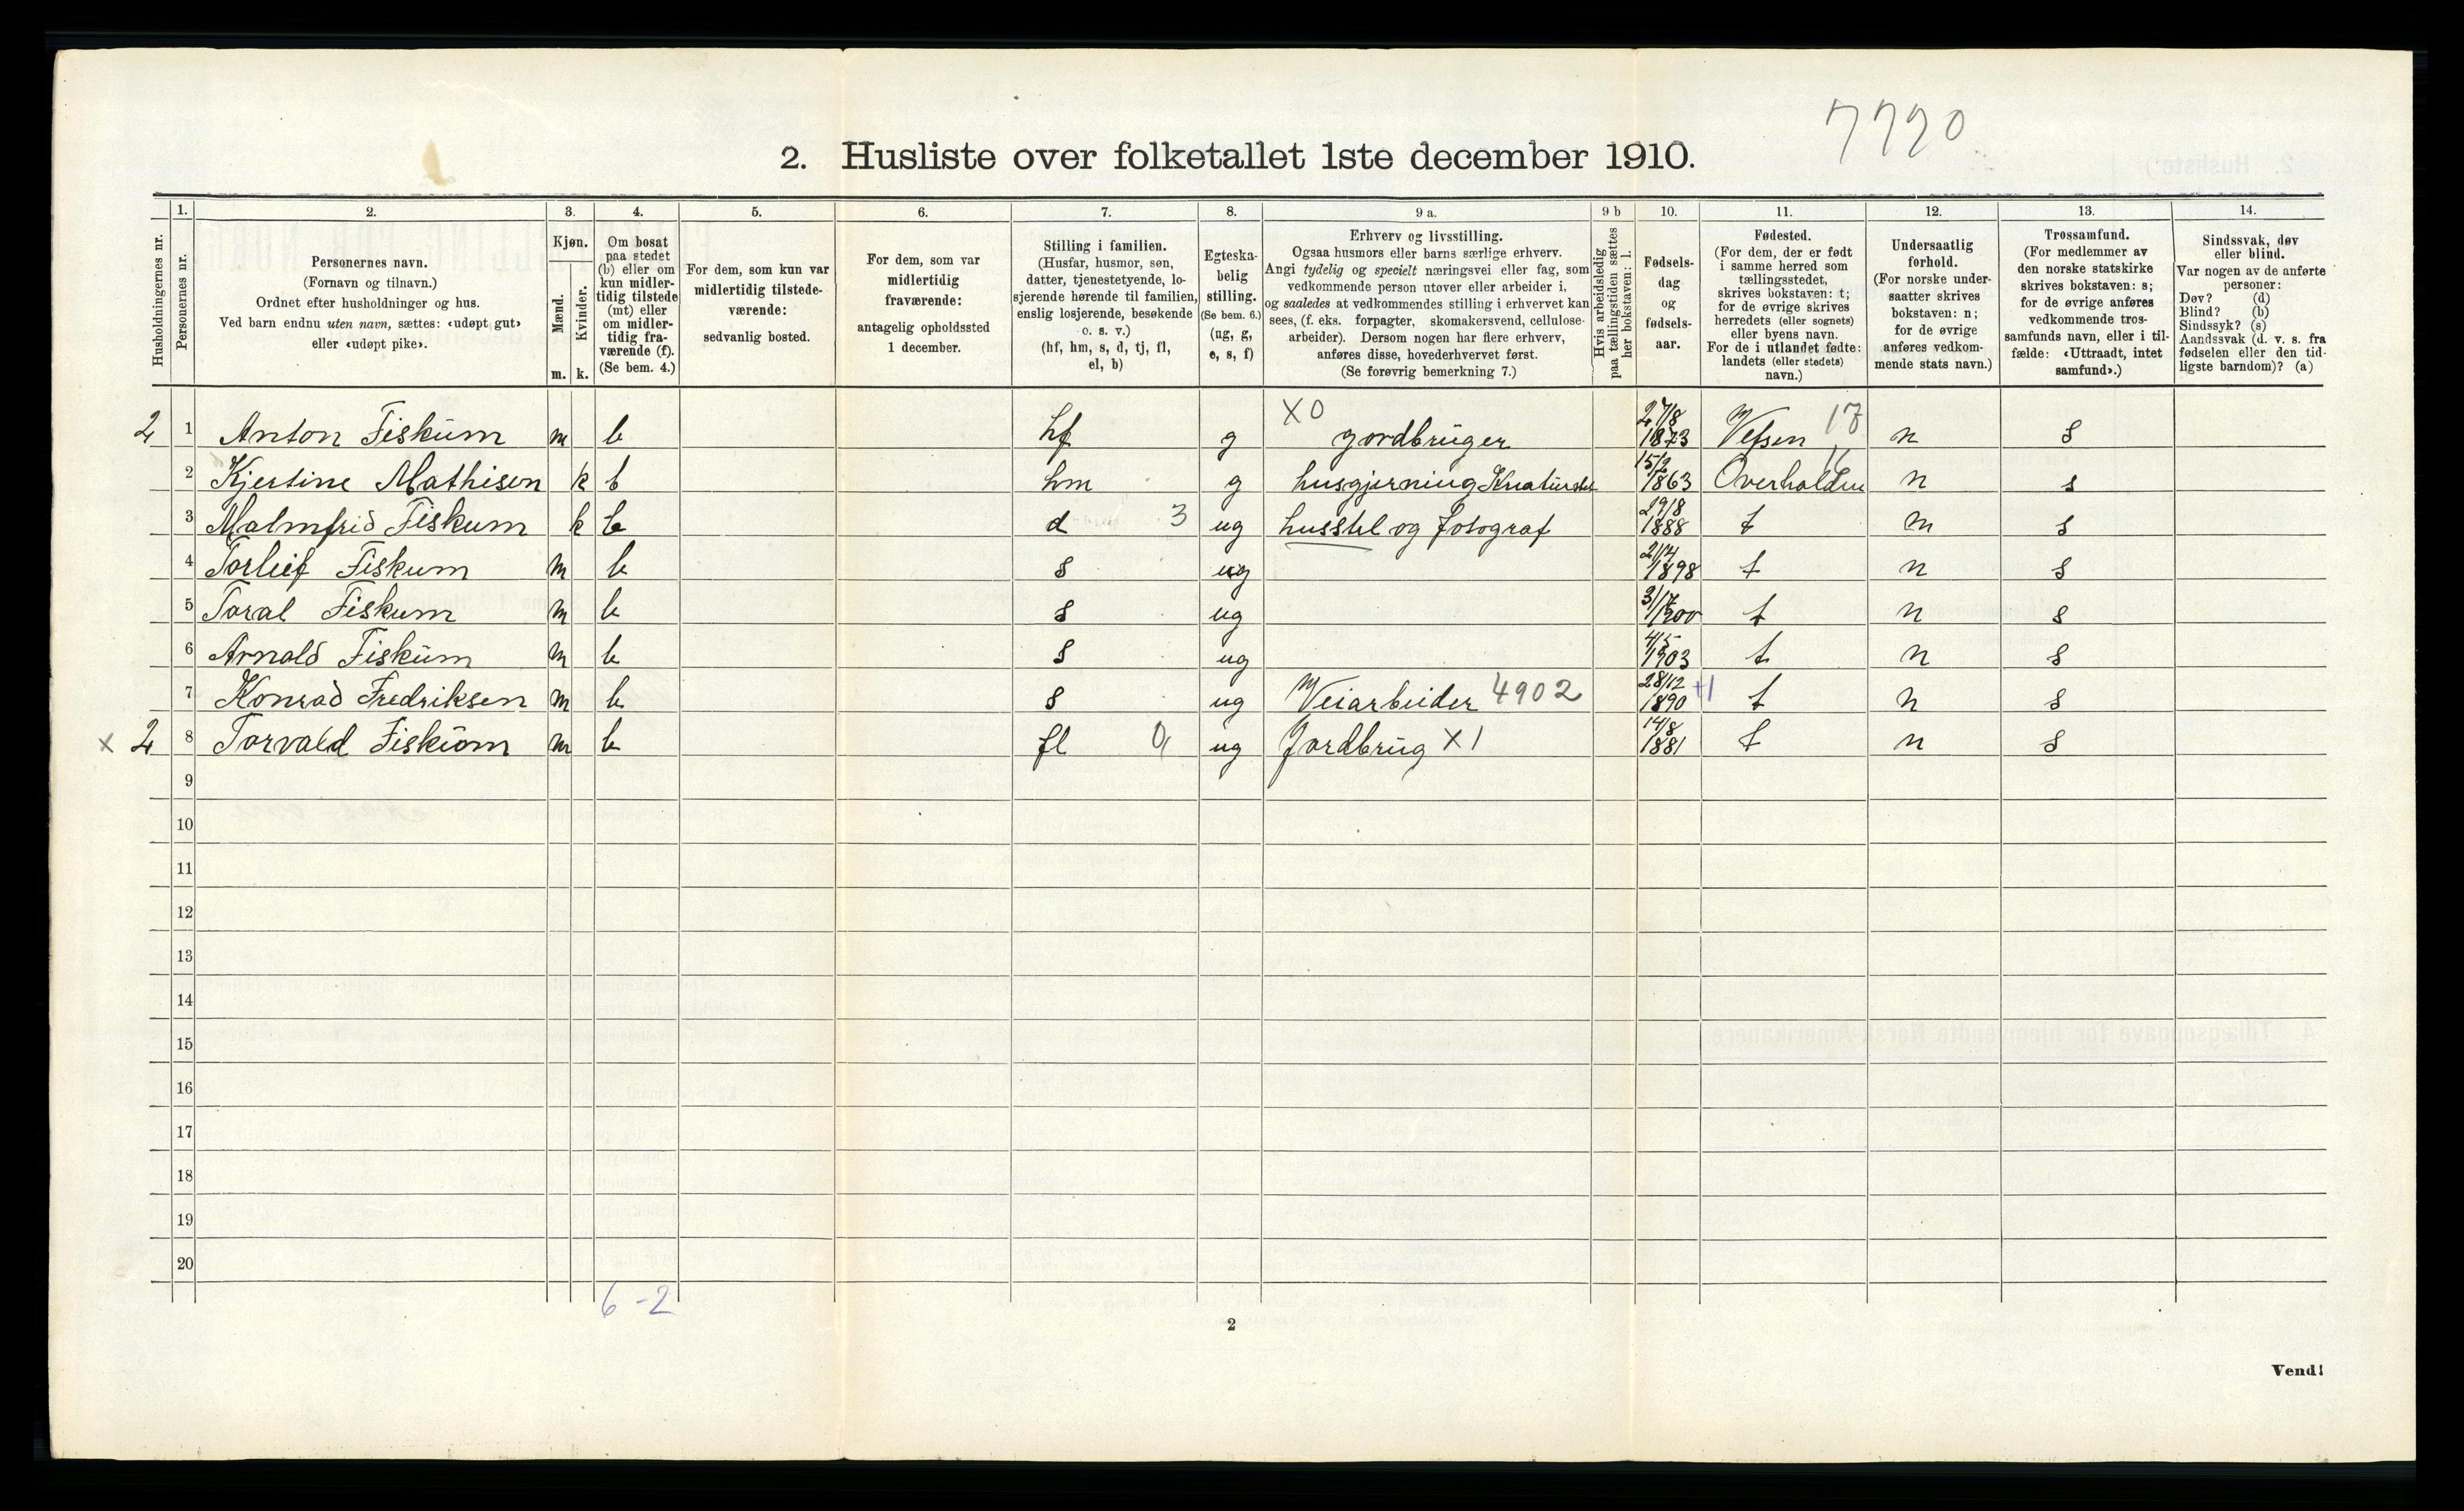 7720
2. Husliste over folketallet 1ste december 1910.
Husholdningernes nr.
1. Personernes nr.
2. Personernes navn.
(Fornavn og tilnavn.)
Ordnet efter husholdninger og hus.
Ved barn endnu uten navn, sættes: «udøpt gut»
eller «udøpt pike».
3. Kjøn.
Mænd. Kvinder.
m. k.
4. Om bosat
paa stedet
(b) eller om
kun midler-
tidig tilstede
(mt) eller
om midler-
tidig fra-
værende (f).
(Se bem. 4.)
5. For dem, som kun var
midlertidig tilstede-
værende:
sedvanlig bosted.
6. For dem, som var
midlertidig
fraværende:
antagelig opholdssted
1 december.
7. Stilling i familien.
(Husfar, husmor, søn,
datter, tjenestetyende, lo-
sjerende hørende til familien,
enslig losjerende, besøkende
o. s. v.)
(hf, hm, s, d, tj, fl,
el, b)
8. Egteska-
belig
stilling.
(Se bem. 6.)
(ug, g,
e, s, f)
9 a. Erhverv og livsstilling.
Ogsaa husmors eller barns særlige erhverv.
Angi tydelig og specielt næringsvei eller fag, som
vedkommende person utøver eller arbeider i,
og saaledes at vedkommendes stilling i erhvervet kan
sees, (f. eks. forpagter, skomakersvend, cellulose-
arbeider). Dersom nogen har flere erhverv,
anføres disse, hovederhvervet først.
(Se forøvrig bemerkning 7.)
9 b Hvis arbeidsledig
paa tællingstiden sættes
her bokstaven: l.
10. Fødsels-
dag
og
fødsels-
aar.
11. Fødested.
(For dem, der er født
i samme herred som
tællingsstedet,
skrives bokstaven: t;
for de øvrige skrives
herredets (eller sognets)
eller byens navn.
For de i utlandet fødte:
landets (eller stedets)
navn.)
12. Undersaatlig
forhold.
(For norske under-
saatter skrives
bokstaven: n;
for de øvrige
anføres vedkom-
mende stats navn.)
13. Trossamfund.
(For medlemmer av
den norske statskirke
skrives bokstaven: s;
for de øvrige anføres
vedkommende tros-
samfunds navn, eller i til-
fælde: «Uttraadt, intet
samfund».)
14. Sindssvak, døv
eller blind.
Var nogen av de anførte
personer:
Døv? (d)
Blind? (b)
Sindssyk? (s)
Aandssvak (d. v. s. fra
fødselen eller den tid-
ligste barndom)? (a)
2 1 Anton Fiskum m b hf g X0 gordbruger 27/8 1873 Vefsen 17 n s
2 Kjerstine Mathisen k b hm g husgjerning Kreaturstel 15/2 1863 Overhalden n s
3 Malmfrid Fiskum k b d 3 ug husstel og fotograf 29/8 1888 t n s
4 Torleif Fiskum m b s ug 1898 t n s
5 Toral Fiskum m b s ug 1900 t n s
6 Arnold Fiskum m b s ug 4/5 1903 t n s
7 Konrad Fredriksen m b s ug Veiarbeider 4902 28/12 1890 +1 t n s
x 2 8 Torvald Fiskum m b fl 0 ug Jordbrug X1 14/8 1881 t n s
9
10
11
12
13
14
15
16
17
18
19
20
6-2
2
Vend!